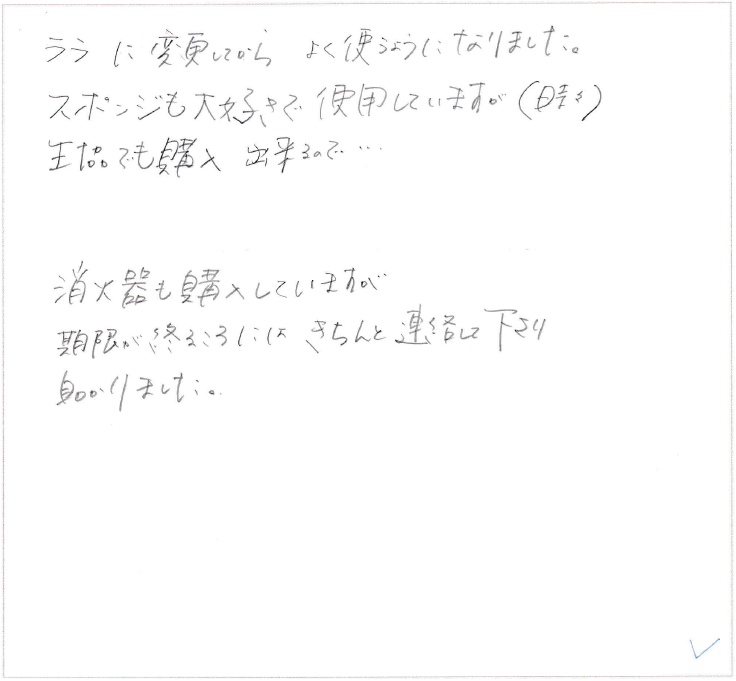 ララに変更してから よく使うようになりました。
スポンジも大好きで使用していますが(時々)
生協でも購入出来るので…
消火器も購入していますが
期限が終るころには きちんと連絡して下さり
助かりました。